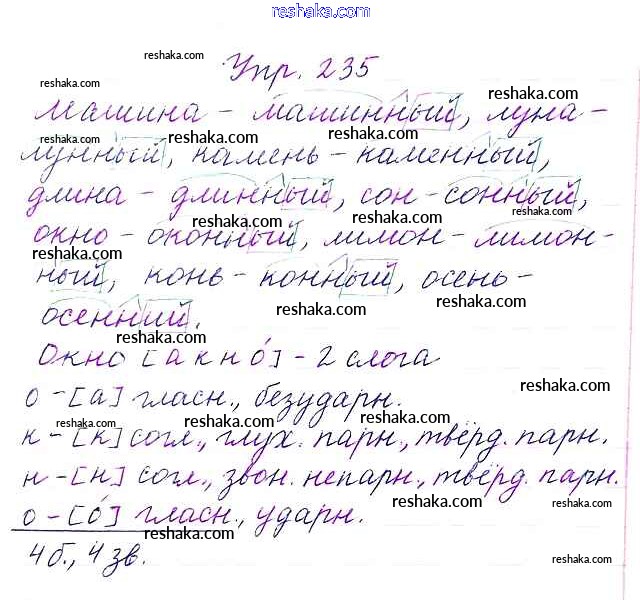 reshaka.com
Упр. 235
Машина - машинный, луна -
лунный, камень - каменный,
длина - длинный, сон - сонный,
окно - оконный, лимон - лимон-
ный, конь - конный, осень -
осенний.
Окно [акно́] - 2 слога
о - [а] гласн., безударн.
к - [к] согл., глух. парн., твёрд. парн.
н - [н] согл., звон. непарн., твёрд. парн.
о - [о́] гласн., ударн.
4 б., 4 зв.